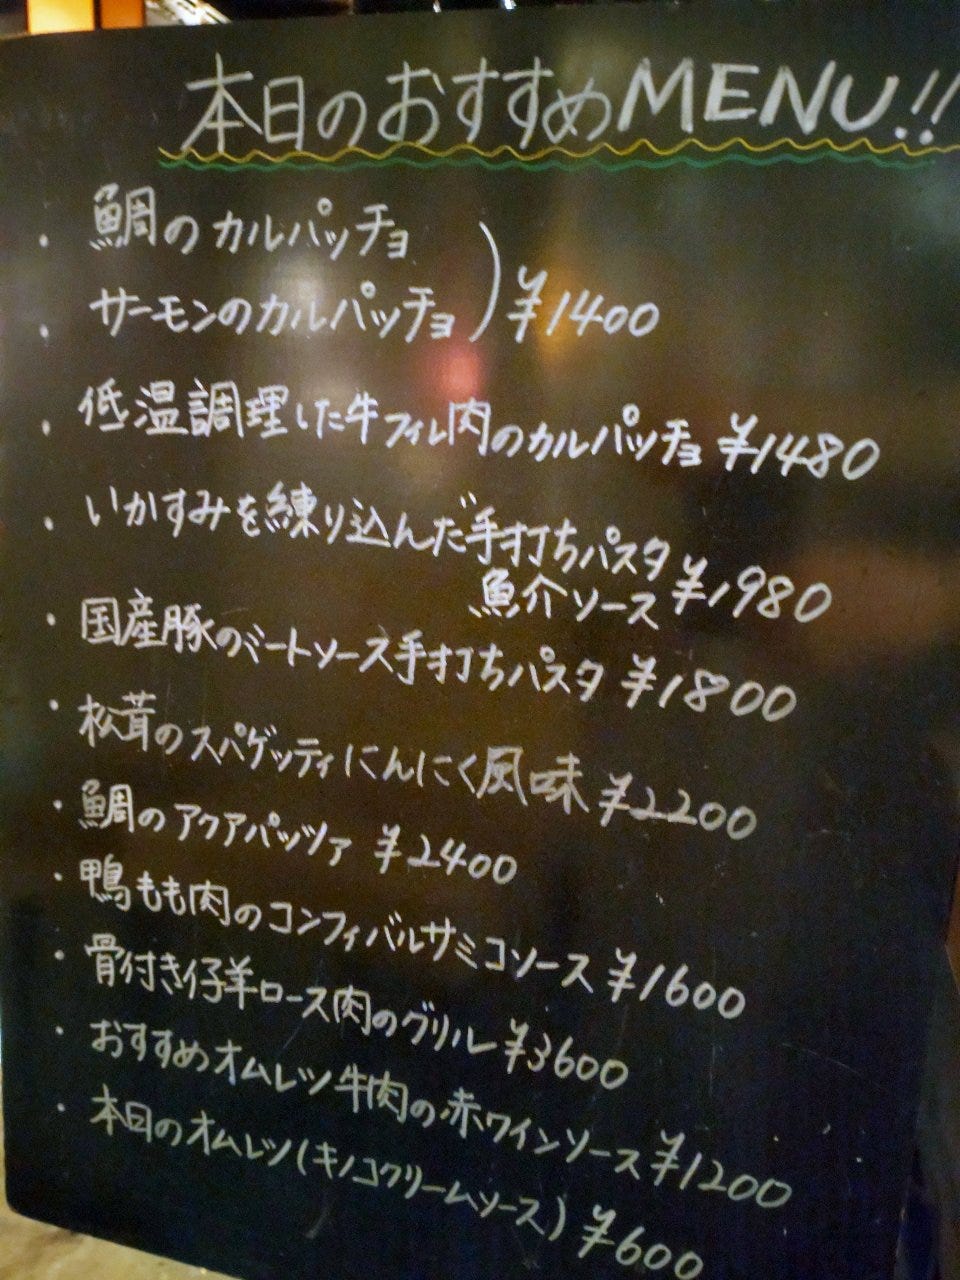 本日のおすすめMENU!!
・鯛のカルパッチョ
・サーモンのカルパッチョ ) ¥1400
・低温調理した牛フィレ肉のカルパッチョ ¥1480
・いかすみを練り込んだ手打ちパスタ
魚介ソース ¥1980
・国産豚のバートソース手打ちパスタ ¥1800
・松茸のスパゲッティにんにく風味 ¥2200
・鯛のアクアパッツァ ¥2400
・鴨もも肉のコンフィバルサミコソース ¥1600
・骨付き仔羊ロース肉のグリル ¥3600
・おすすめオムレツ牛肉の赤ワインソース ¥1200
・本日のオムレツ(キノコクリームソース) ¥600